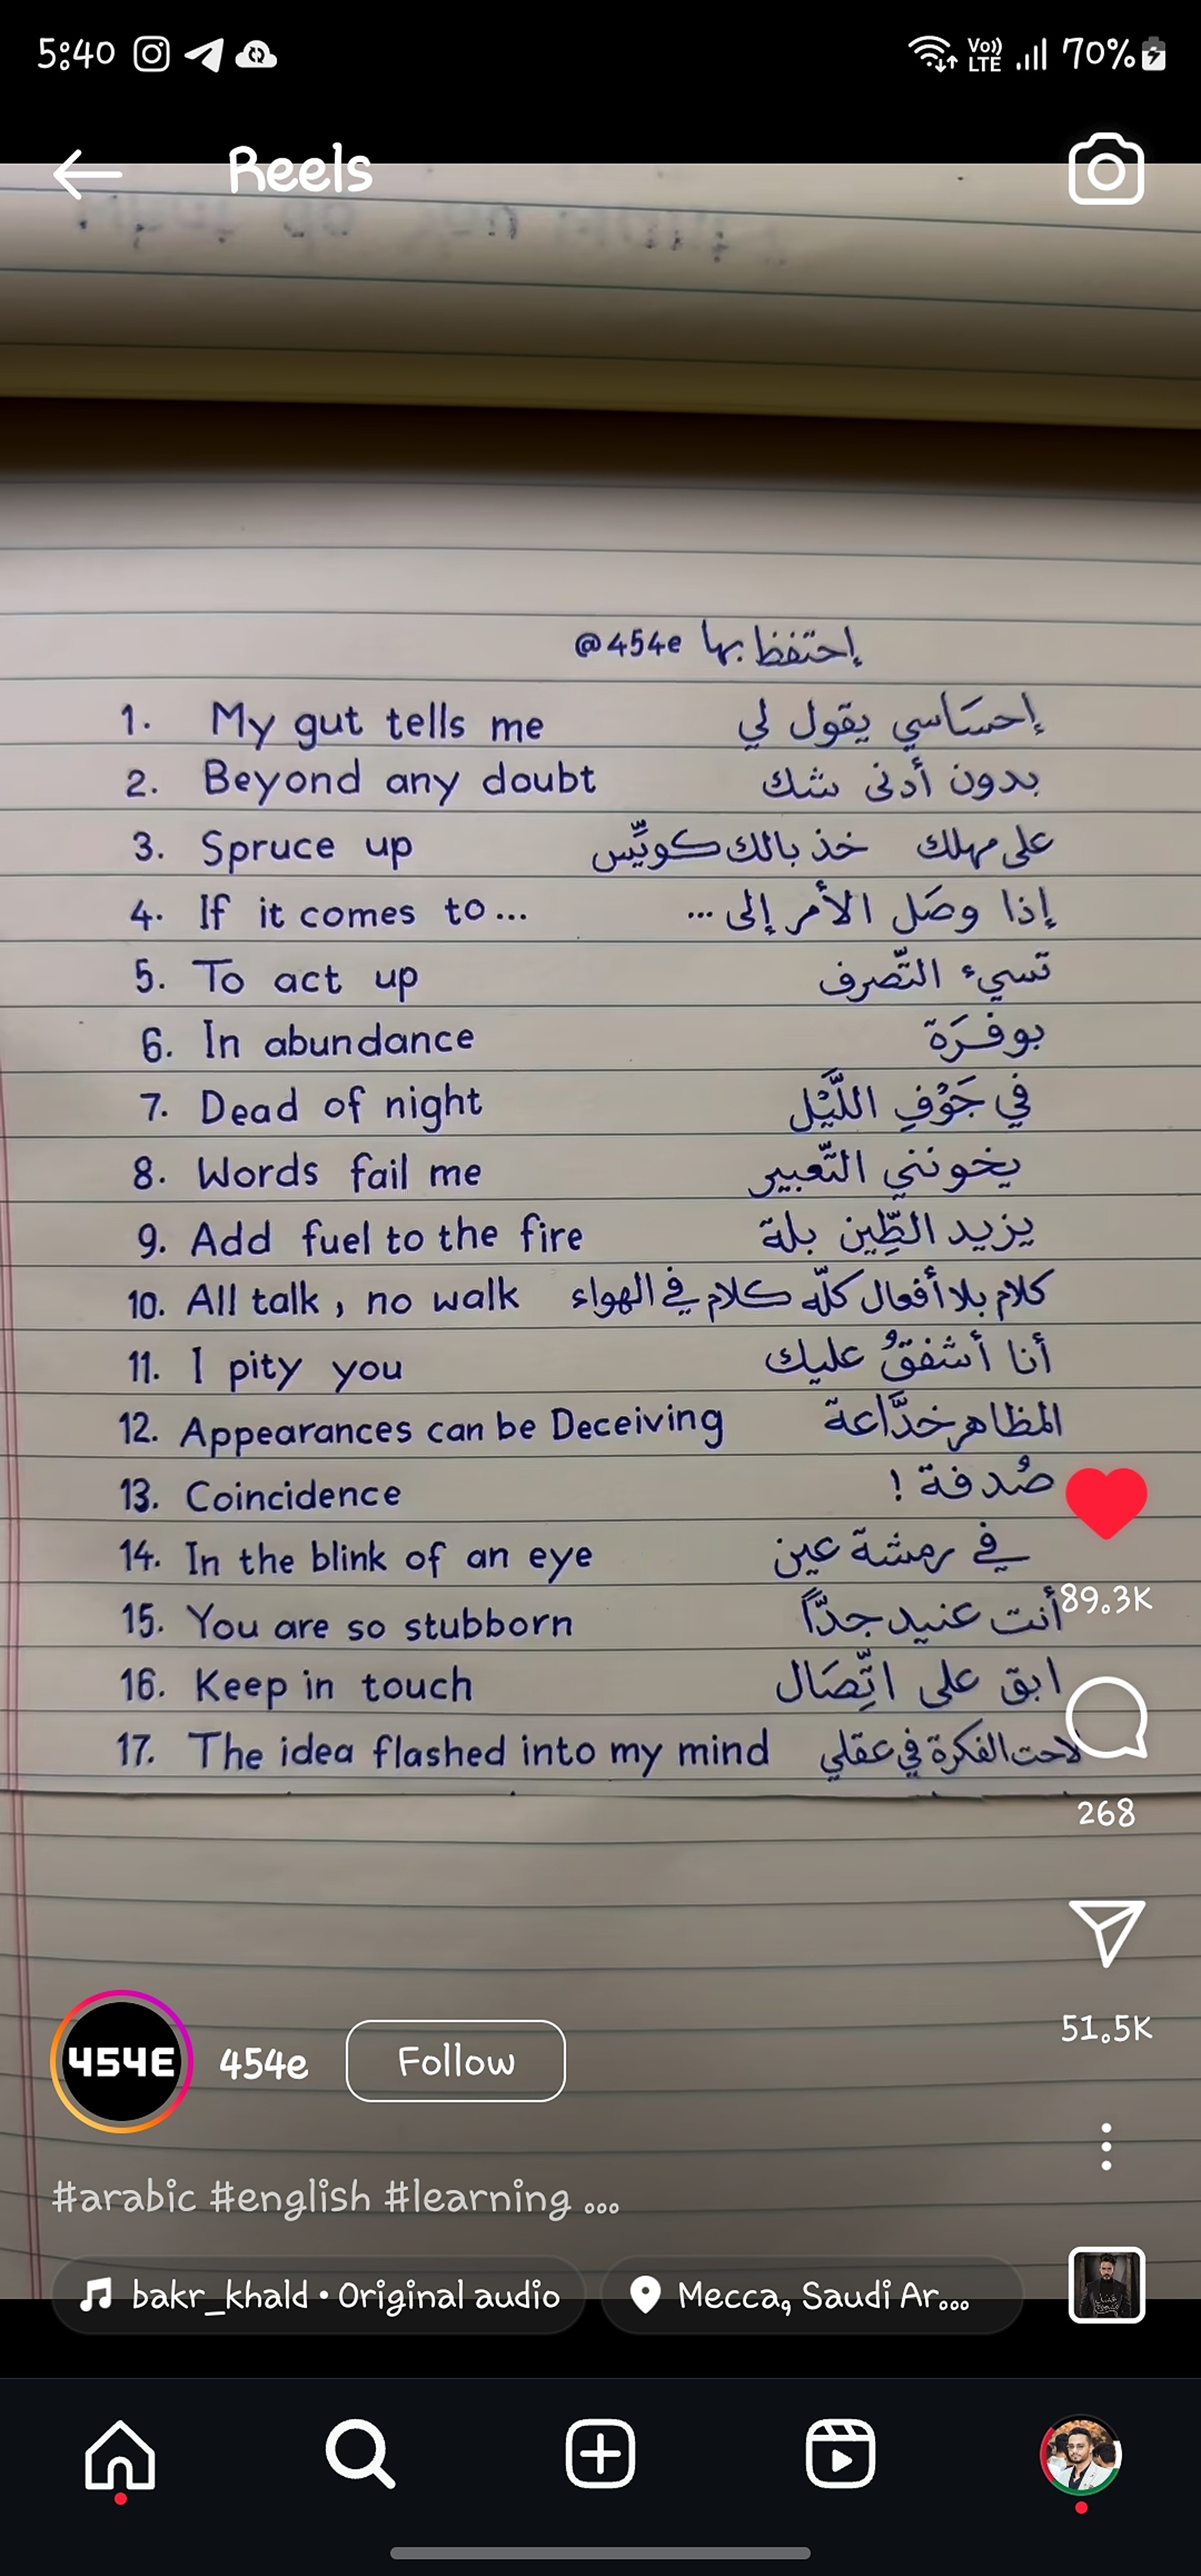 5:40 Vo)) LTE 70%
Reels
@454e إحتفظ بها
1. My gut tells me إحسَاسي يقول لي
2. Beyond any doubt بدون أدنى شك
3. Spruce up على مهلك خذ بالك كويِّس
4. If it comes to... إذا وصَل الأمر إلى ...
5. To act up تسيء التّصرف
6. In abundance بوفرَة
7. Dead of night في جَوْفِ اللَّيْل
8. Words fail me يخونني التّعبير
9. Add fuel to the fire يزيد الطِّين بلة
10. All talk, no walk كلام بلا أفعال كلّه كلام في الهواء
11. I pity you أنا أشفقُ عليك
12. Appearances can be Deceiving المظاهر خدَّاعة
13. Coincidence صُدفة !
14. In the blink of an eye في رمشة عين
15. You are so stubborn أنت عنيد جدًّا
89.3K
16. Keep in touch ابق على اتِّصَال
17. The idea flashed into my mind لاحت الفكرة في عقلي
268
51.5K
454E 454e Follow
#arabic #english #learning ...
bakr_khald • Original audio Mecca, Saudi Ar...